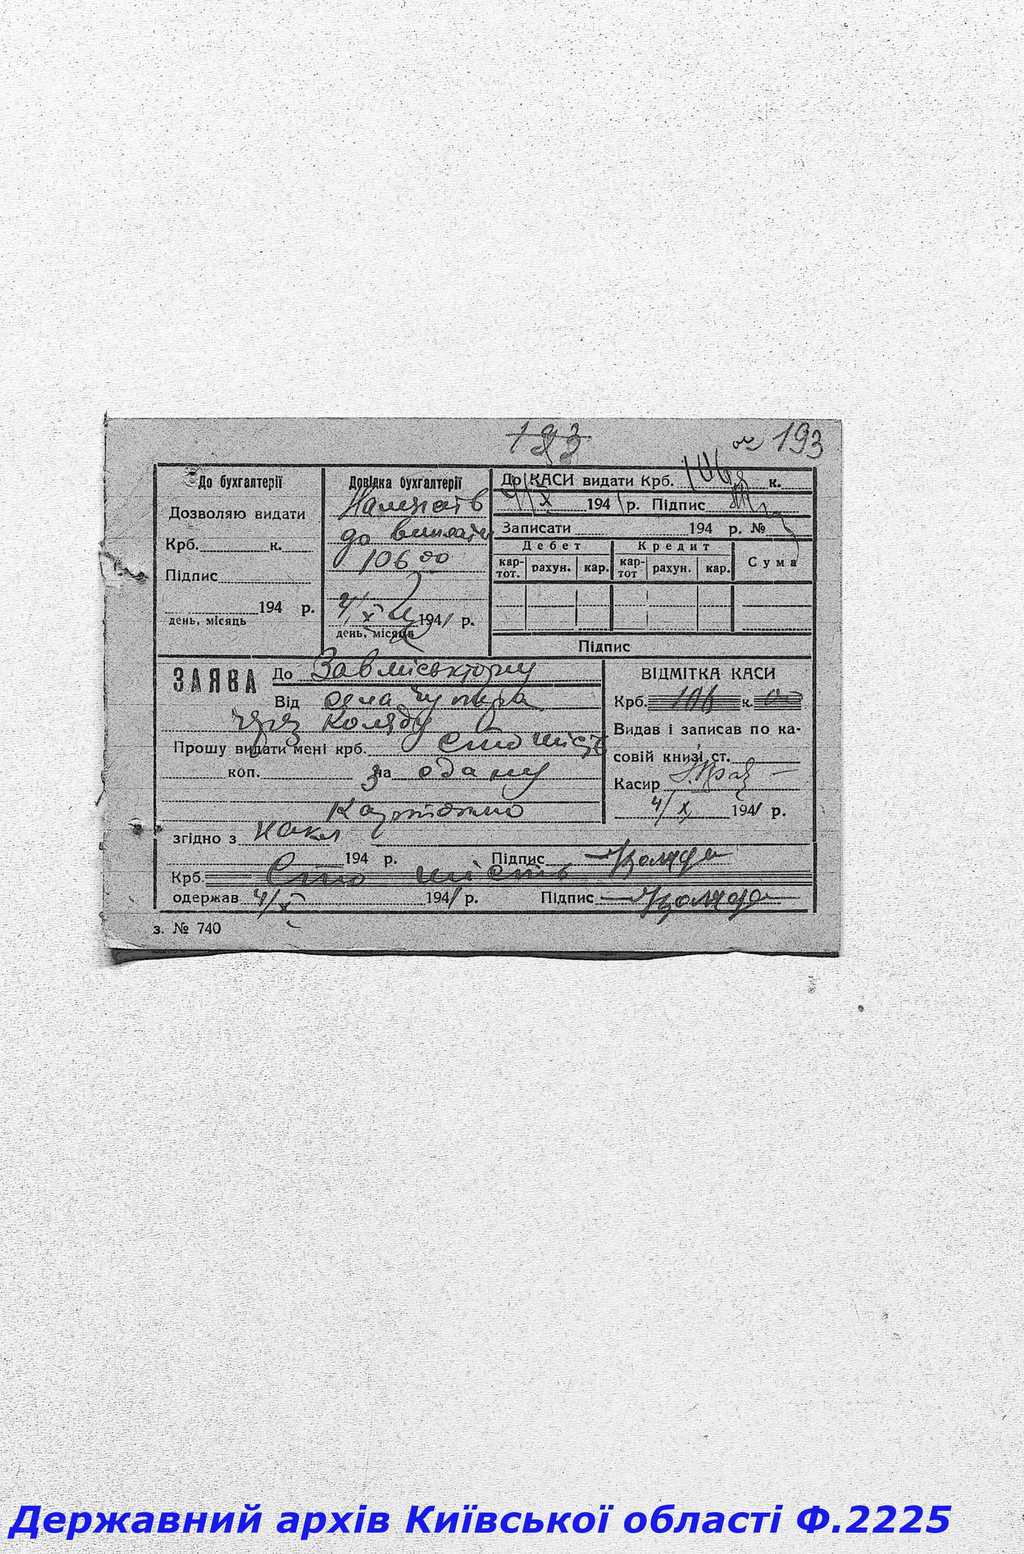 193
193
До бухгалтерії
Дозволяю видати
Крб. к.
Підпис
194 р.
день, місяць
Довідка бухгалтерії
Належить
до виплати
106 00
4/X 1941 р.
день, місяць
До КАСИ видати Крб. 106 к.
4/X 1941 р. Підпис
Записати 194 р. №
Дебет Кредит Сума
кар-тот. рахун. кар. кар-тот рахун. кар.
Підпис
ЗАЯВА До Завміськторгу
Від села
через Коляду
Прошу видати мені крб. Сто шість
коп. за здану
Картоплю
згідно з накл
194 р. Підпис Коляда
Крб. Сто шість
одержав 4/X 1941 р. Підпис Коляда
ВІДМІТКА КАСИ
Крб. 106 к. 00
Видав і записав по ка-
совій книзі ст.
Касир
4/X 1941 р.
з. № 740
Державний архів Київської області Ф.2225